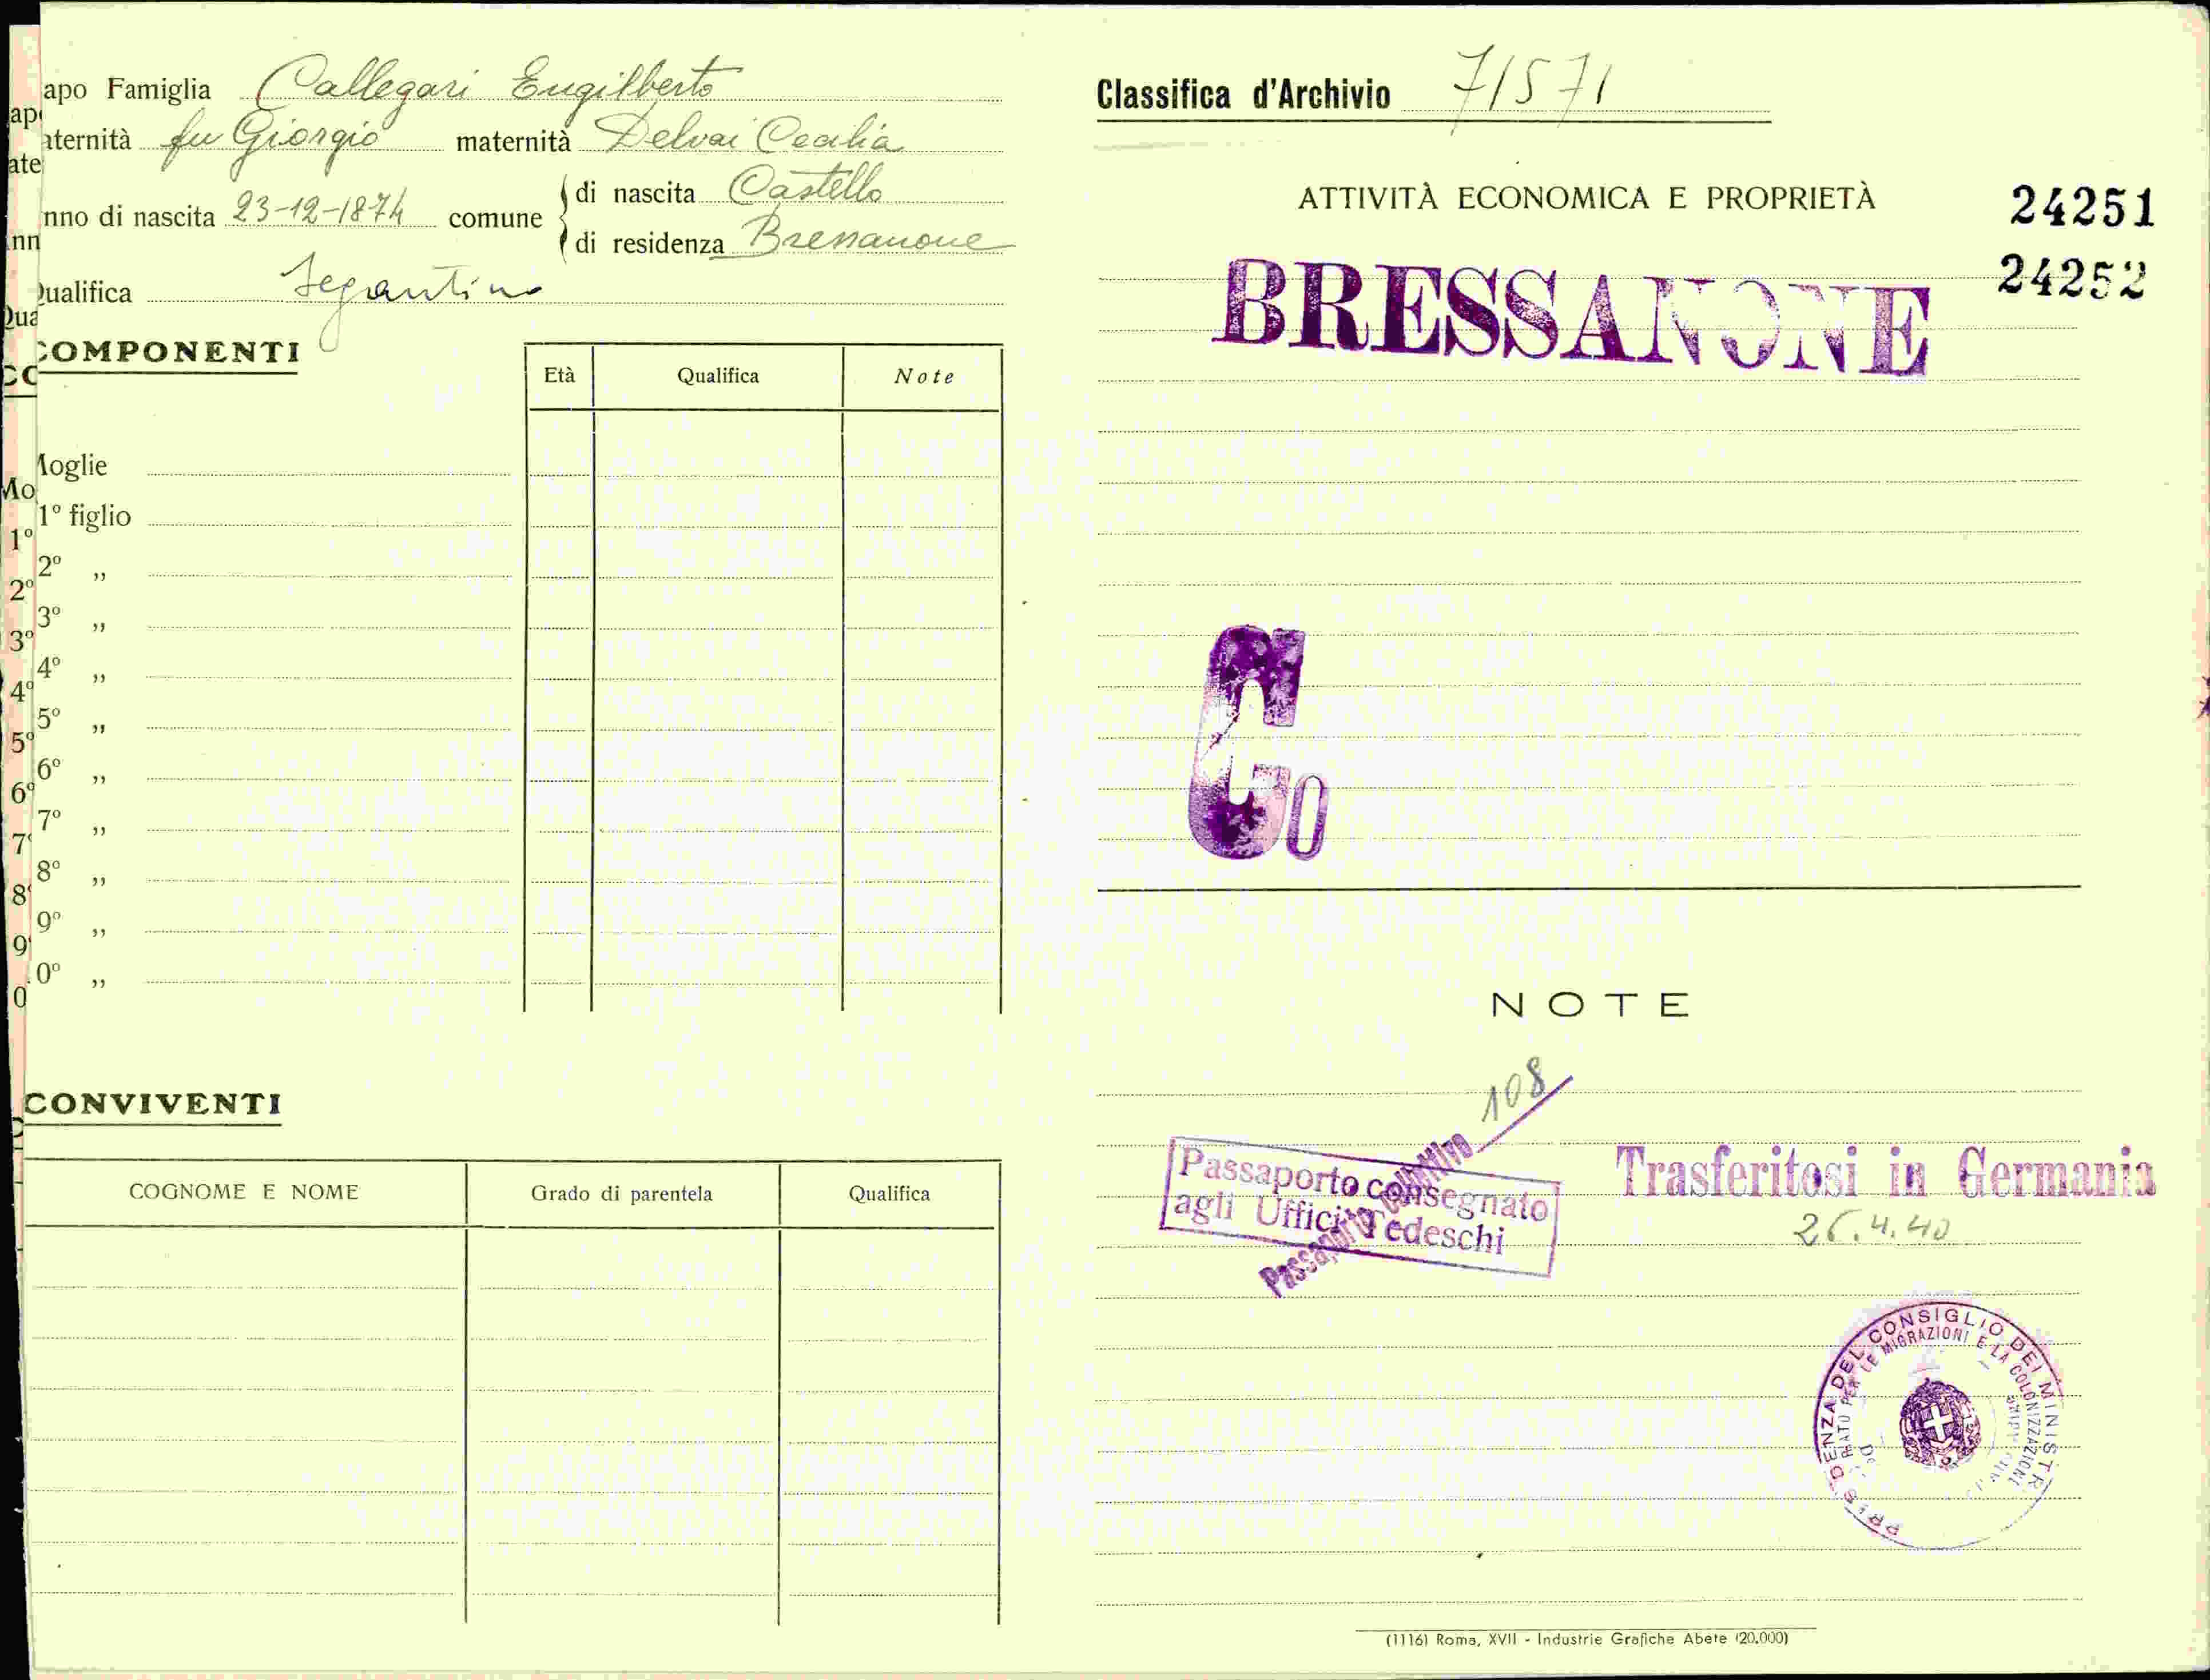 apo Famiglia Callegari Engilberto
aternità fu Giorgio maternità Delvai Cecilia
nno di nascita 23-12-1874 comune di nascita Castello
di residenza Bressanone
Qualifica Segantino
COMPONENTI
Età Qualifica Note
Moglie
1º figlio
2º „
3º „
4º „
5º „
6º „
7º „
8º „
9º „
0º „
CONVIVENTI
COGNOME E NOME Grado di parentela Qualifica
Classifica d'Archivio 71571
ATTIVITÀ ECONOMICA E PROPRIETÀ
24251
24252
BRESSANONE
Co
NOTE
108
Passaporto collettivo
Passaporto consegnato
agli Uffici Tedeschi
Trasferitosi in Germania
26.4.40
PRESIDENZA DEL CONSIGLIO DEI MINISTRI
LE MIGRAZIONI E LA COLONIZZAZIONE
(1116) Roma, XVII - Industrie Grafiche Abete (20.000)